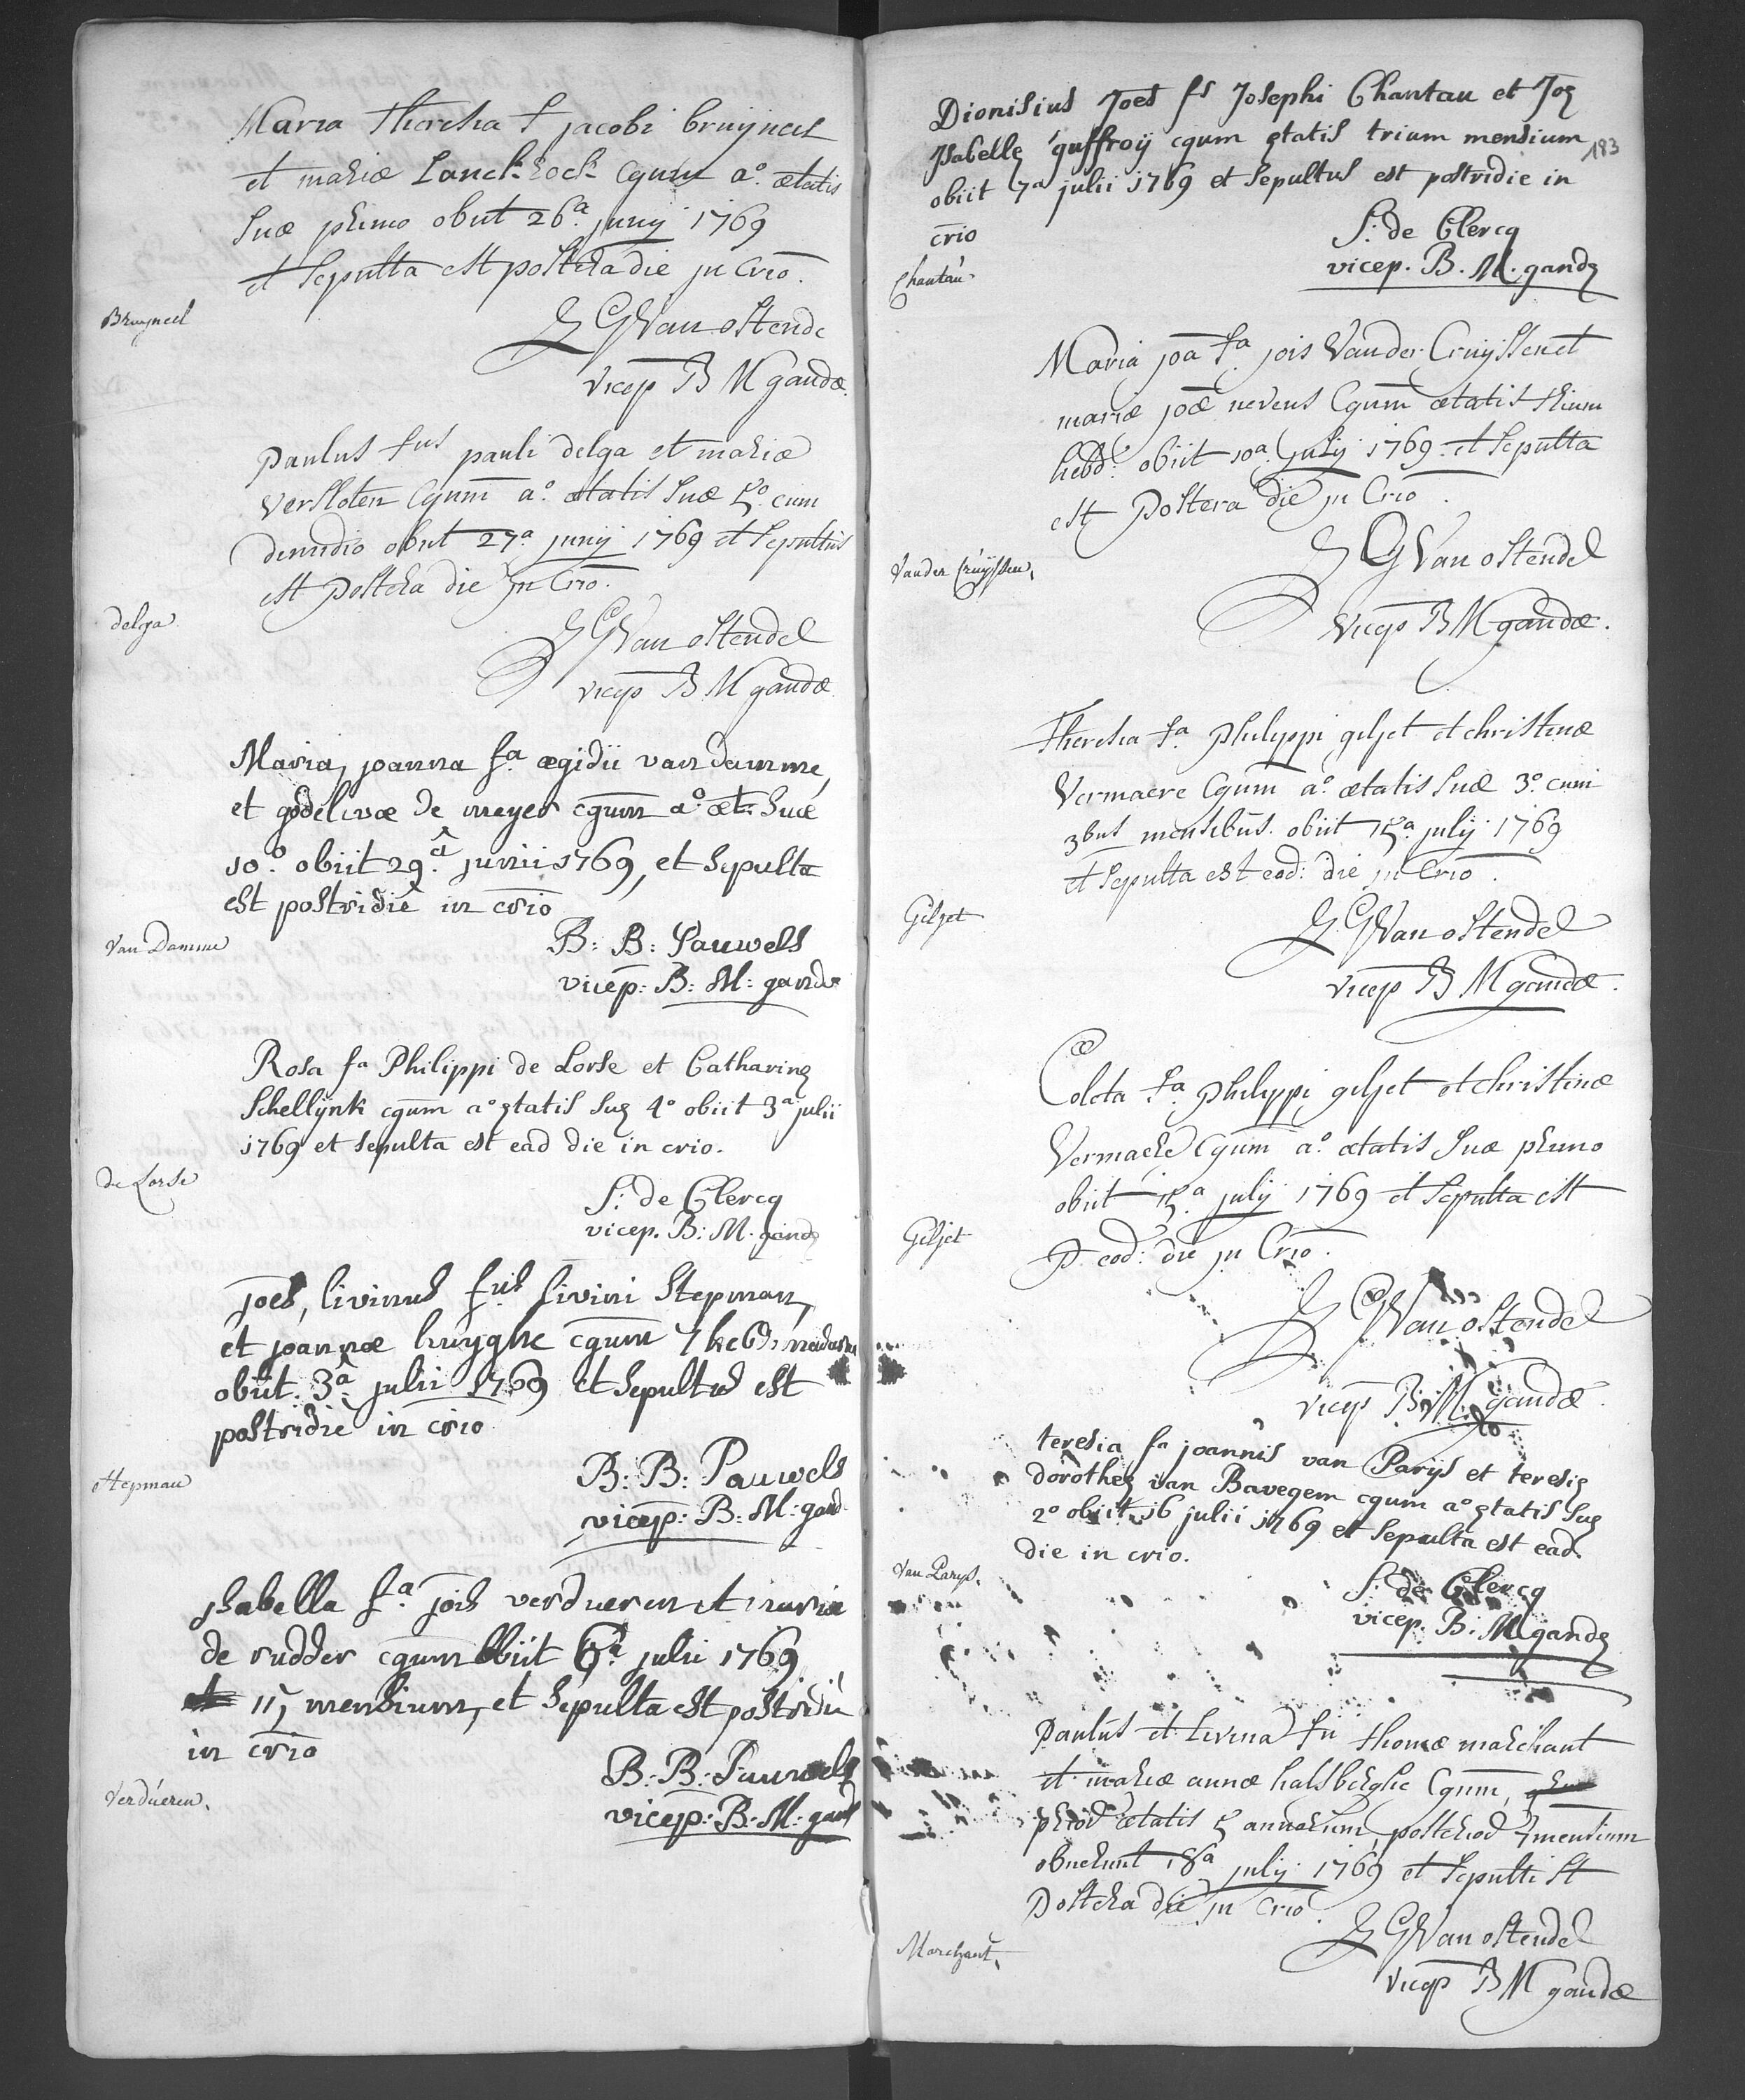 Maria Theresia f jacobi bruyneel
et mariæ Lanckrock Cgum a.º ætatis
suæ primo obiit 26.ª junij 1769
et sepulta est postera die in Crio.
Bruyneel
Van ostende
vicep B M gandæ.
Paulus fus pauli delga et mariæ
Versloten Cgum aº. ætatis suæ 5º. cum
dimidio obiit 27ª junij 1769 et sepultus
est postera die in Crio.
delga
Van ostendel
vicep B M gandæ
Maria, joanna fª ægidii van damme,
et godelivæ de meyer cgum aº. æt. suæ
10.º obiit 29.ª junii 1769, et sepulta
est postridie in crio
Van Damme
B: B: Pauwels
vicep: B: M: gandæ
Rosa fª Philippi de Lorse et Catharinę
Schellynk cgum aº ętatis suę 4º obiit 3ª julii
1769 et sepulta est ead die in crio.
de Lorse
S: de Clercq
vicep. B: M. gandę
joes, livinus fus livini Stepman,
et joannæ huyghe cgum 7 hebdomadarum
obiit 3ª julii 1769 et sepultus est
postridie in crio
Stepman
B: B: Pauwels
vicep: B: M: gand
jsabella f.ª jois verdueren et mariæ
de rudder cgum obiit 6.ª julii 1769
et 11, mensium, et sepulta est postridie
in crio
Verdueren.
B: B: Pauwels
vicep: B: M: gand
183
Dionisius Joes fs Josephi Chantau et Joę
Jsabellę guffroÿ cgum ętatis trium mensium
obiit 7ª julii 1769 et sepultus est postridie in
crio
Chantau
S: de Clercq
vicep. B. M. gandę
Maria joa fª jois Vander Cruyssen et
mariæ joæ nevens Cgum ætatis trium
hebd: obiit 10ª. julij 1769. et sepulta
est postera die in Crio.
Vander Cruÿssen,
Van ostendel
Vicep B M gandæ.
Theresia fª. philippi geljet et christinæ
Vermaere Cgum aº ætatis suæ 3º. cum
3bus mensibus. obiit 15ª. julij 1769
et sepulta est eod: die in Crio.
Geljet
Van ostendel
vicep B M gandæ.
Coleta fª. philippi geljet et christinæ
Vermaere Cgum aº. ætatis suæ primo
obiit 15.ª julij 1769 et sepulta est
eod: die in Crio.
Geljet
Van ostendel
vicep B: M. gandæ.
teresia fª joannis van Parijs et teresię
dorotheę van Bavegem cgum aº ętatis suę
2º obiit 16 julii 1769 et sepulta est ead
die in crio.
Van Parys.
S: de Clercq
vicep. B: M gandę
Paulus et Livina fu thomæ marchant
et mariæ annæ halsberghe Cgum,
prior ætatis 5 annorum, posterior 7 mensium
obierunt 18ª julij 1769 et sepulti st
postera die in Crio.
Marchant,
Van ostendel
vicep B M gandæ